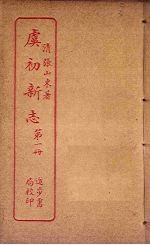 清張山來著
虞初新志 第一冊
進步書
局校印